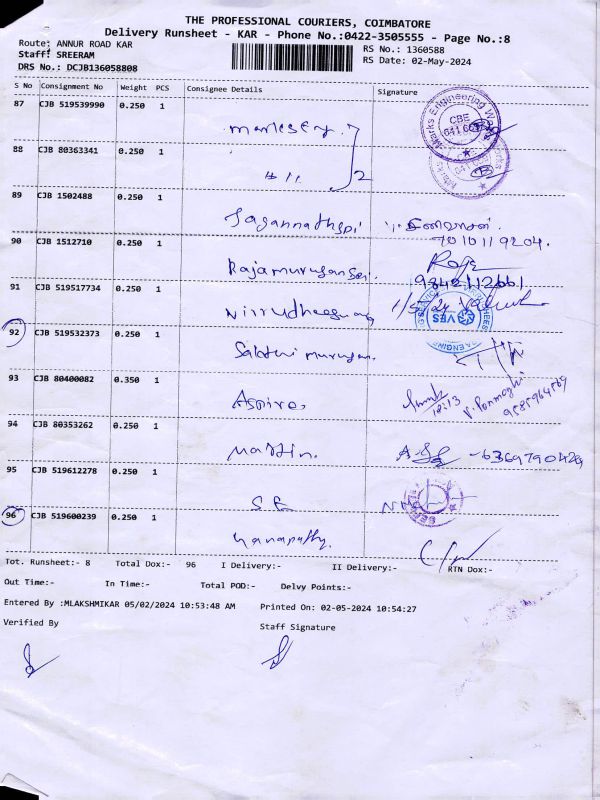 THE PROFESSIONAL COURIERS, COIMBATORE
Delivery Runsheet - KAR - Phone No.:0422-3505555 - Page No.:8
Route: ANNUR ROAD KAR
RS No.: 1360588
Staff: SREERAM
RS Date: 02-May-2024
DRS No.: DCJB136058808
S No Consignment No Weight PCS Consignee Details Signature
87 CJB 519539990 0.250 1
CBE
641 6
88 CJB 80363341 0.250 1
" 11 2
89 CJB 1502488 0.250 1
Jagannath
7010119204.
90 CJB 1512710 0.250 1
Rajamurugan Raja
9842112661
91 CJB 519517734 0.250 1
VES
92 CJB 519532373 0.250 1
Sakthi murugan.
93 CJB 80400082 0.350 1
Aspire.
12:13
V. Ponmozhi
94 CJB 80353262 0.250 1
Martin. - 6369790429
95 CJB 519612278 0.250 1
S.E
96 CJB 519600239 0.250 1
Ganapathy.
Tot. Runsheet:- 8 Total Dox:- 96 I Delivery:- II Delivery:- RTN Dox:-
Out Time:- In Time:- Total POD:- Delvy Points:-
Entered By :MLAKSHMIKAR 05/02/2024 10:53:48 AM Printed On: 02-05-2024 10:54:27
Verified By Staff Signature